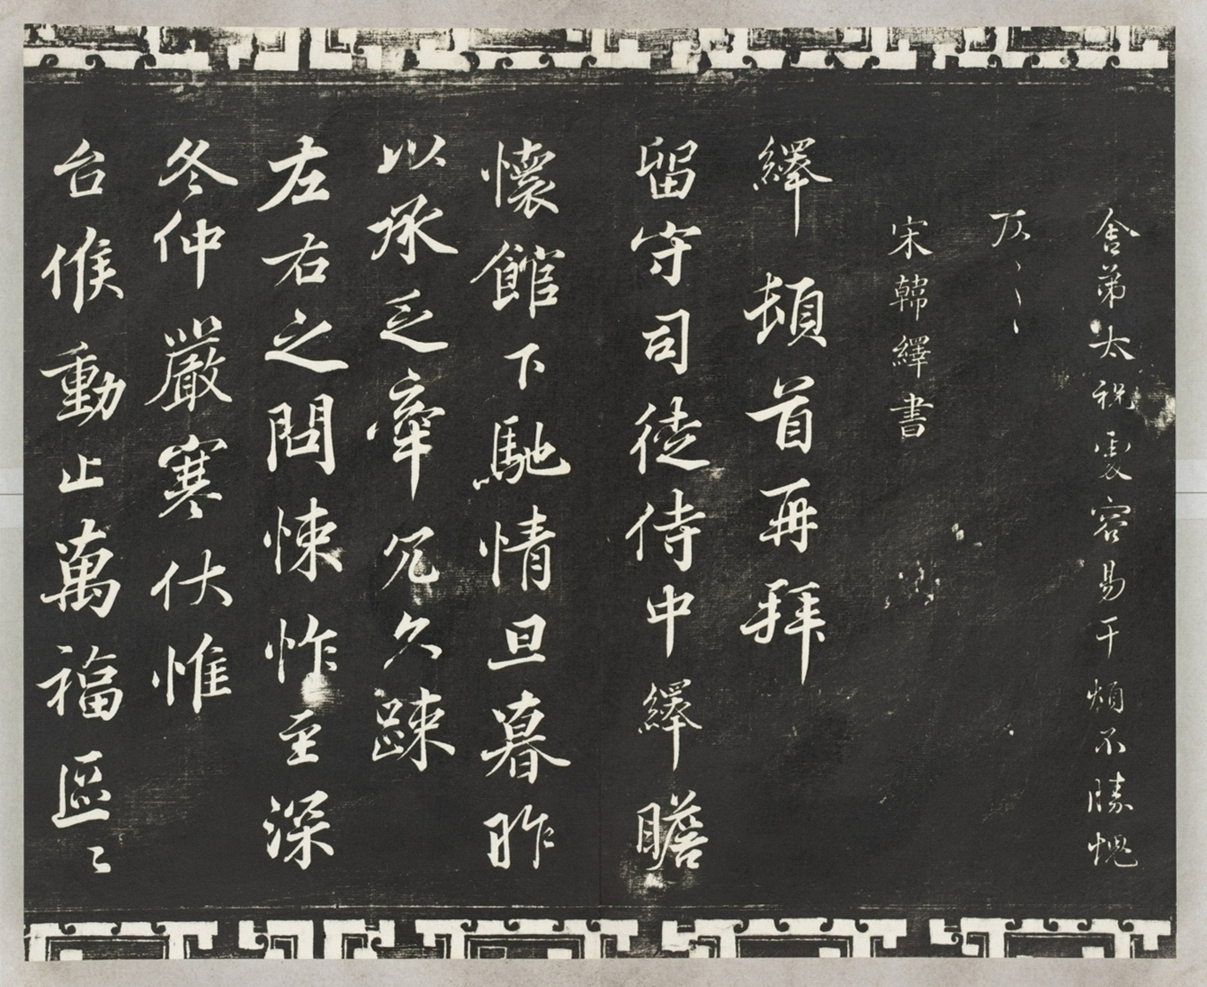 舍弟太祝處容易干煩不勝愧
仄〻
宋韓繹書
繹頓首再拜
留守司徒侍中繹瞻
懷館下馳情旦暮昨
以承乏牽冗久疎
左右之問悚怍至深
冬仲嚴寒伏惟
台候動止萬福區〻